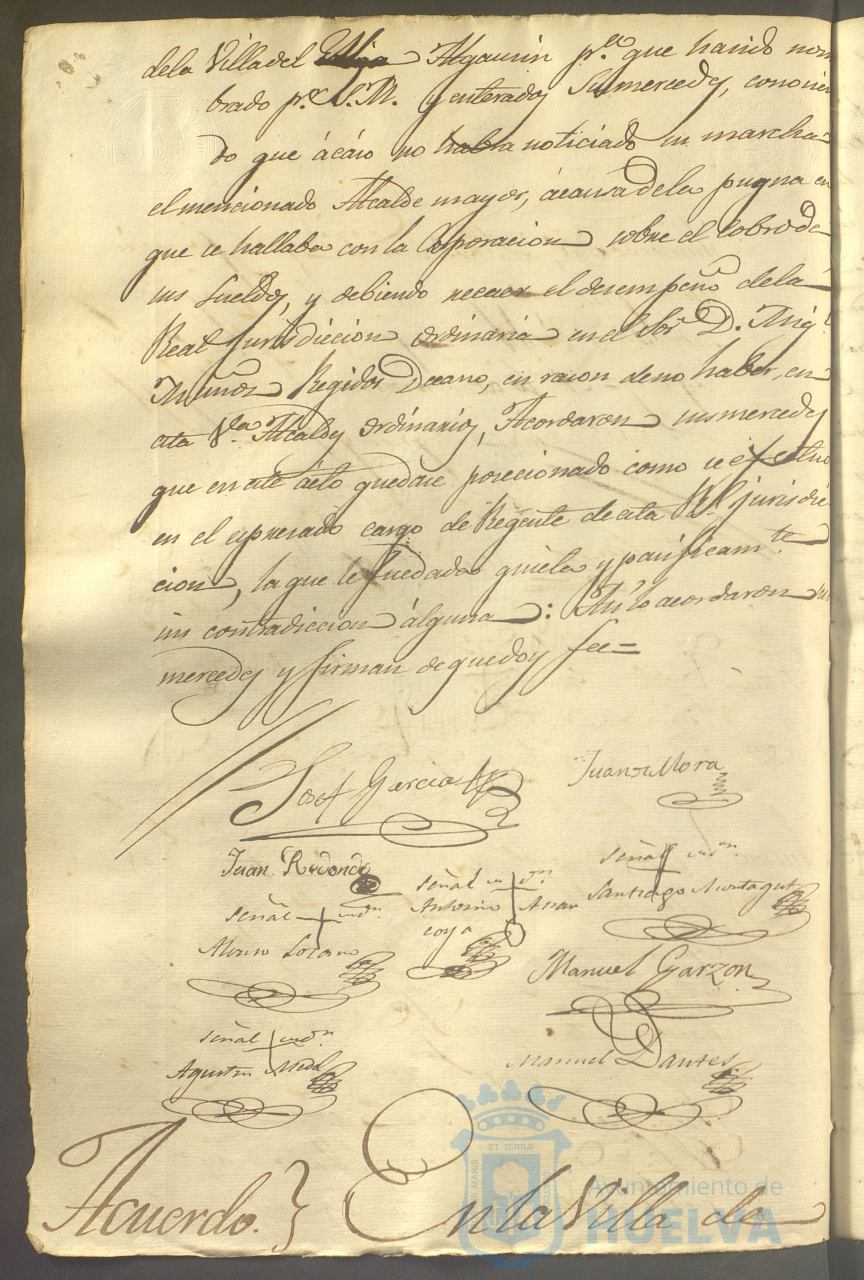 dela Villa del Algaurin pr.ª que ha sido nom
brado pr. S. M. y enterados Sus mercedes, conocien
do que ácaso no habra noticiado su marcha
el mencionado Alcalde mayor, ácausa dela pugna en
que se hallaba con la Corporacion sobre el cobro de
sus sueldos, y debiendo recaer el desempeño dela
Real jurisdiccion ordinaria en el Sor. D.
Muñoz Regidor Decano, en razon deno haber, en
esta V.ª Alcaldes ordinarios, Acordaron sus mercedes
que en este ácto quedase posecionado como se efectuo
en el espresado cargo de Regente de esta Rl. jurisdic
cion, la que le fue dada quieta y pacificam.te
sin contradiccion álguna: Asi lo acordaron sus
mercedes y firman de que doy fee=
Josef Garcia
Juan de Mora
Juan Redondo
Señal + de Dn.
Santiago Montagut
Señal + de Dn.
Antonio
coya
Señal + de Dn.
Alonso Lozano
Manuel Garzon
Señal + de Dn.
Agustin
Manuel Dantes
Acuerdo. } En la Villa de
ET TERRÆ
MARIS
Ayuntamiento de
HUELVA